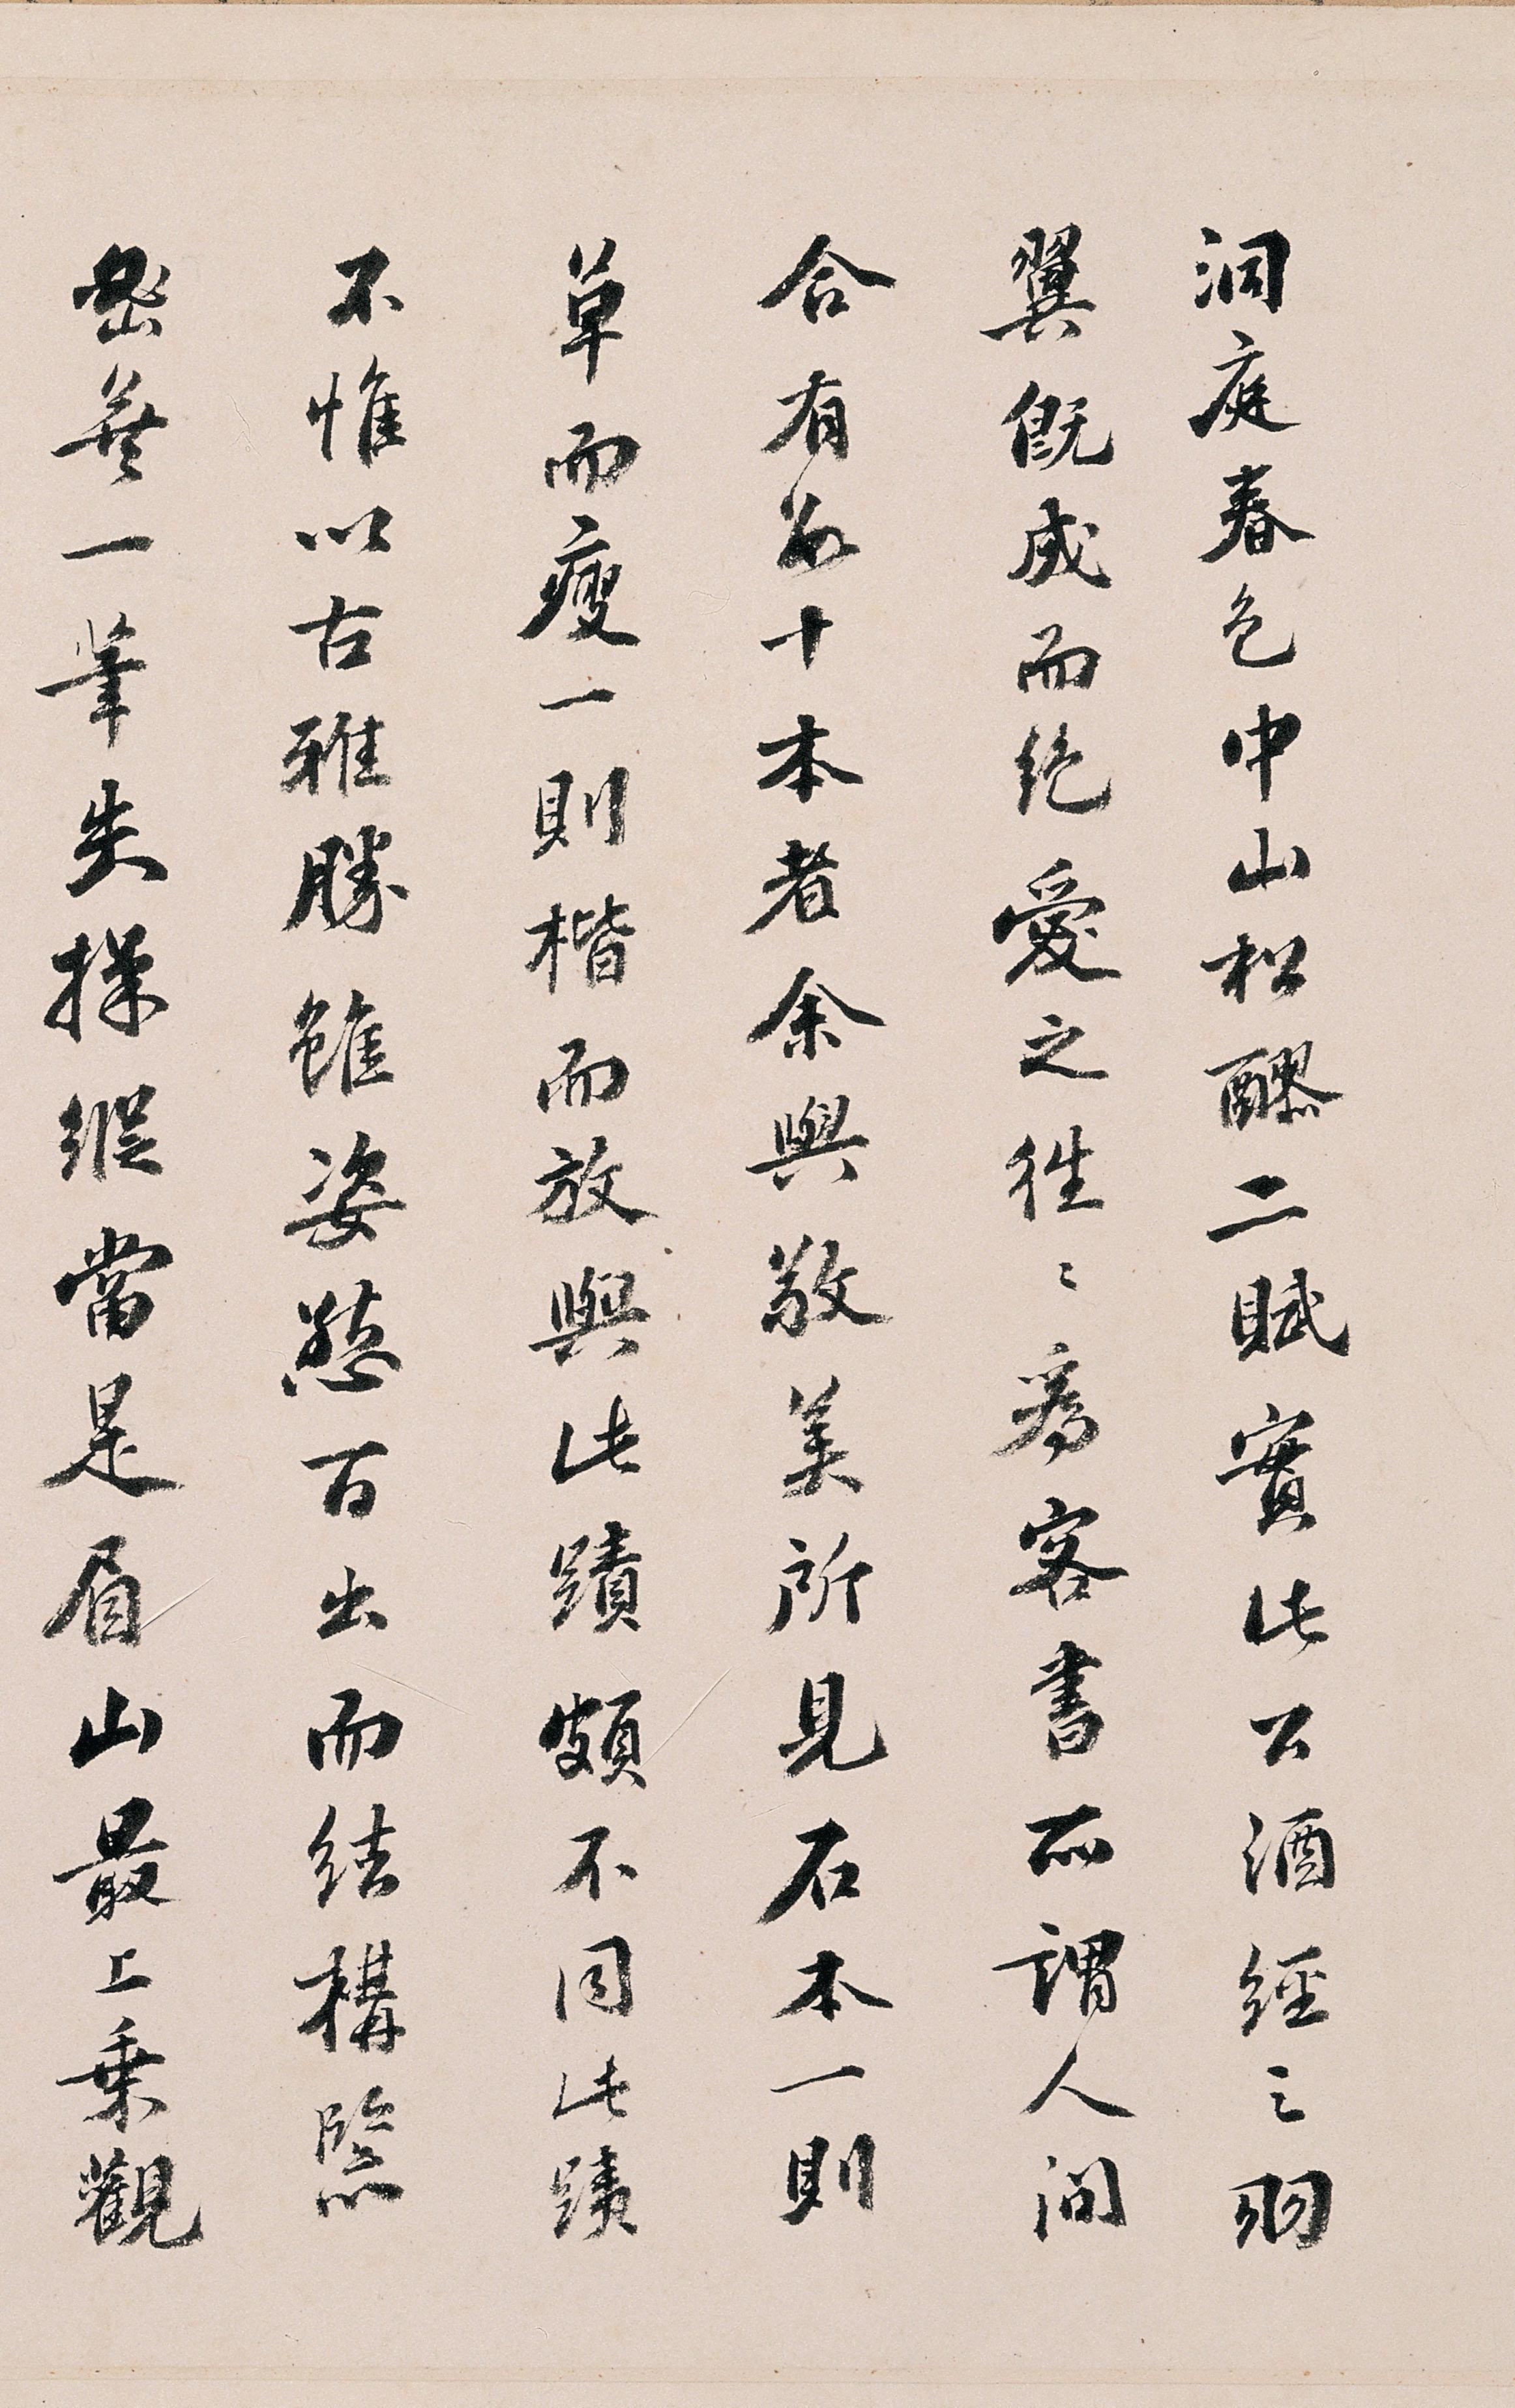 洞庭春色中山松醪二賦實此公酒經之羽
翼既成而絶愛之徃〻爲客書所謂人間
合有數十本者余與敬美所見石本一則
草而瘦一則楷而放與此蹟頗不同此蹟
不惟以古雅勝雖姿態百出而結構緊
密無一筆失操縱當是眉山最上乗觀